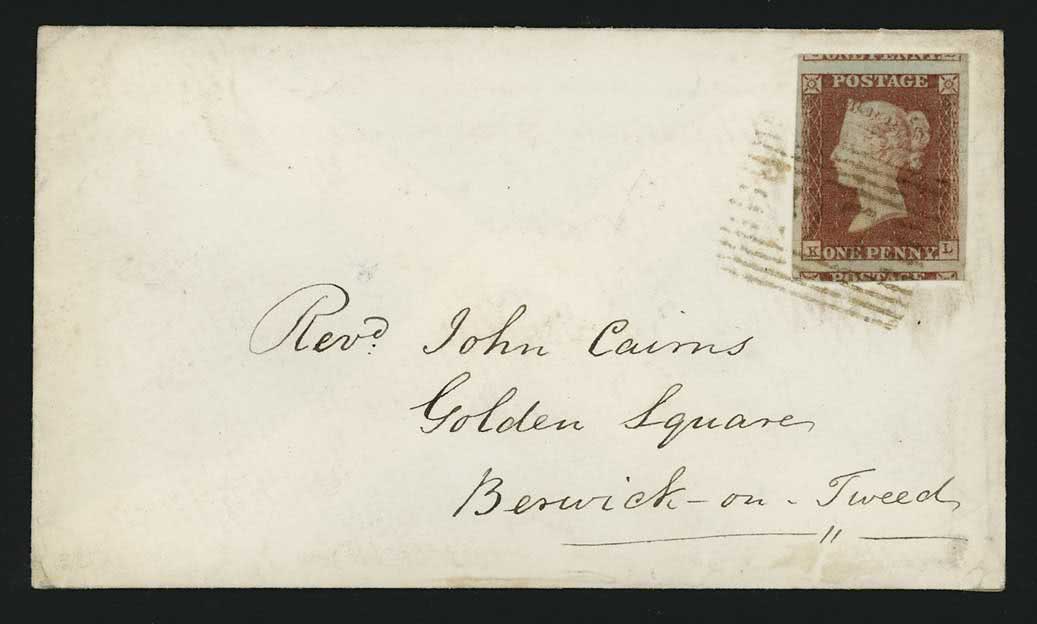 ONE PENNY
POSTAGE
K ONE PENNY L
POSTAGE
Revd. John Cairns
Golden Square
Berwick-on-Tweed